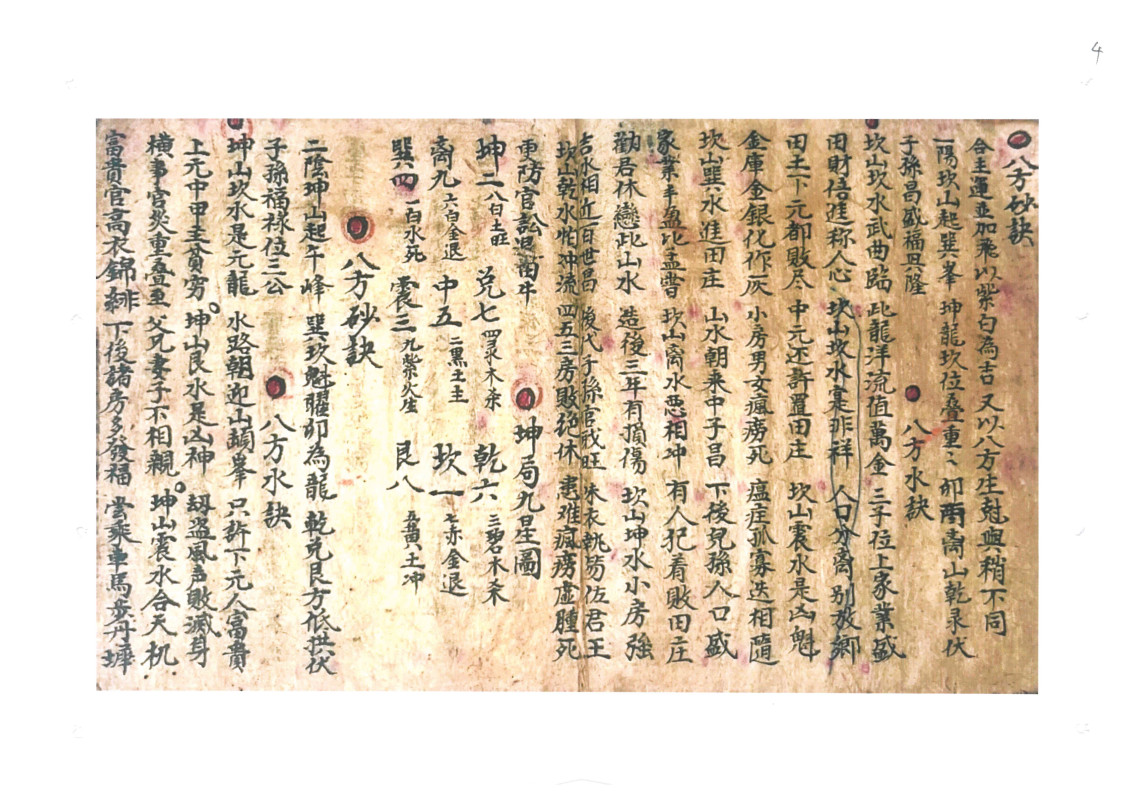 4
八方砂訣
合主運並加飛以紫白為吉 又以八方生尅與稍不同
一陽坎山起巽峯 坤龍坎位叠重〻 卯丙离山乾彔伏
子孫昌盛福興隆
八方水訣
坎山坎水武曲臨 此龍洋流值萬金 三子位上家業盛
田財倍進称人心 坎山坎水棄非祥 人口分离别放鄉
田土下元都敗尽 中元还許置田庄 坎山震水是凶魁
金庫金銀化作灰 小房男女瘋癆死 瘟症孤寡迭相隨
坎山巽水進田庄 山水朝来中子昌 下後兒孫人口盛
家業丰盈比孟嘗 坎山离水惡相冲 有人犯着敗田庄
勸君休戀此山水 造後三年有損傷 坎山坤水小房強
吉水相近百世昌 後代子孫官戒旺 朱衣執笏伍君王
坎山乾水怕冲流 四五三房敗絕休 患难瘋癆虛腫死
更防官訟退田牛
坤局九星圖
坤二 八白土旺 兑七 四彔木杀 乾六 三碧木杀
离九 六白金退 中五 二黑土主 坎一 七赤金退
巽四 一白水死 震三 九紫火生 艮八 五黄土冲
八方砂訣
二陰坤山起午峰 巽坎魁罡卯為龍 乾兑艮方低拱伏
子孫福祿位三公
八方水訣
坤山坎水是元龍 水路朝迎山頭峯 只許下元人富貴
上元中甲主貧穷 坤山艮水是凶神 刼盗風声敗滅身
橫事官災重叠至 父兄妻子不相親 坤山震水合天机
富貴官高衣錦緋 下後諸房多發福 雲乘車馬步丹墀